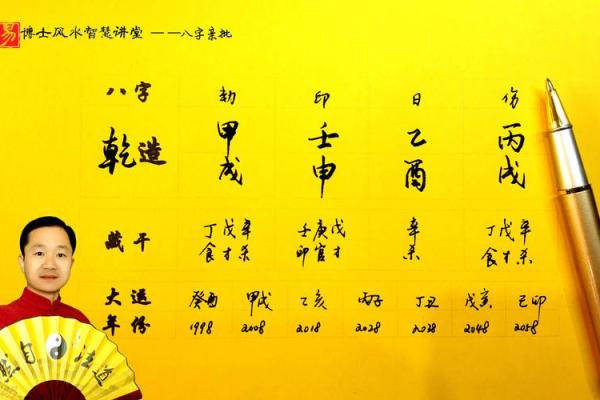 易 博士风水智慧讲堂 ——八字亲批
八字 劫 印 日 伤
乾造 甲 壬 乙 丙
戌 申 酉 戌
藏干 丁戊辛 壬庚戊 辛 丁戊辛
食才杀 印官才 杀 食才杀
大运 癸酉 甲戌 乙亥 丙子 丁丑 戊寅 己卯
年份 1998 2008 2018 2028 2028 2048 2058
然自法道